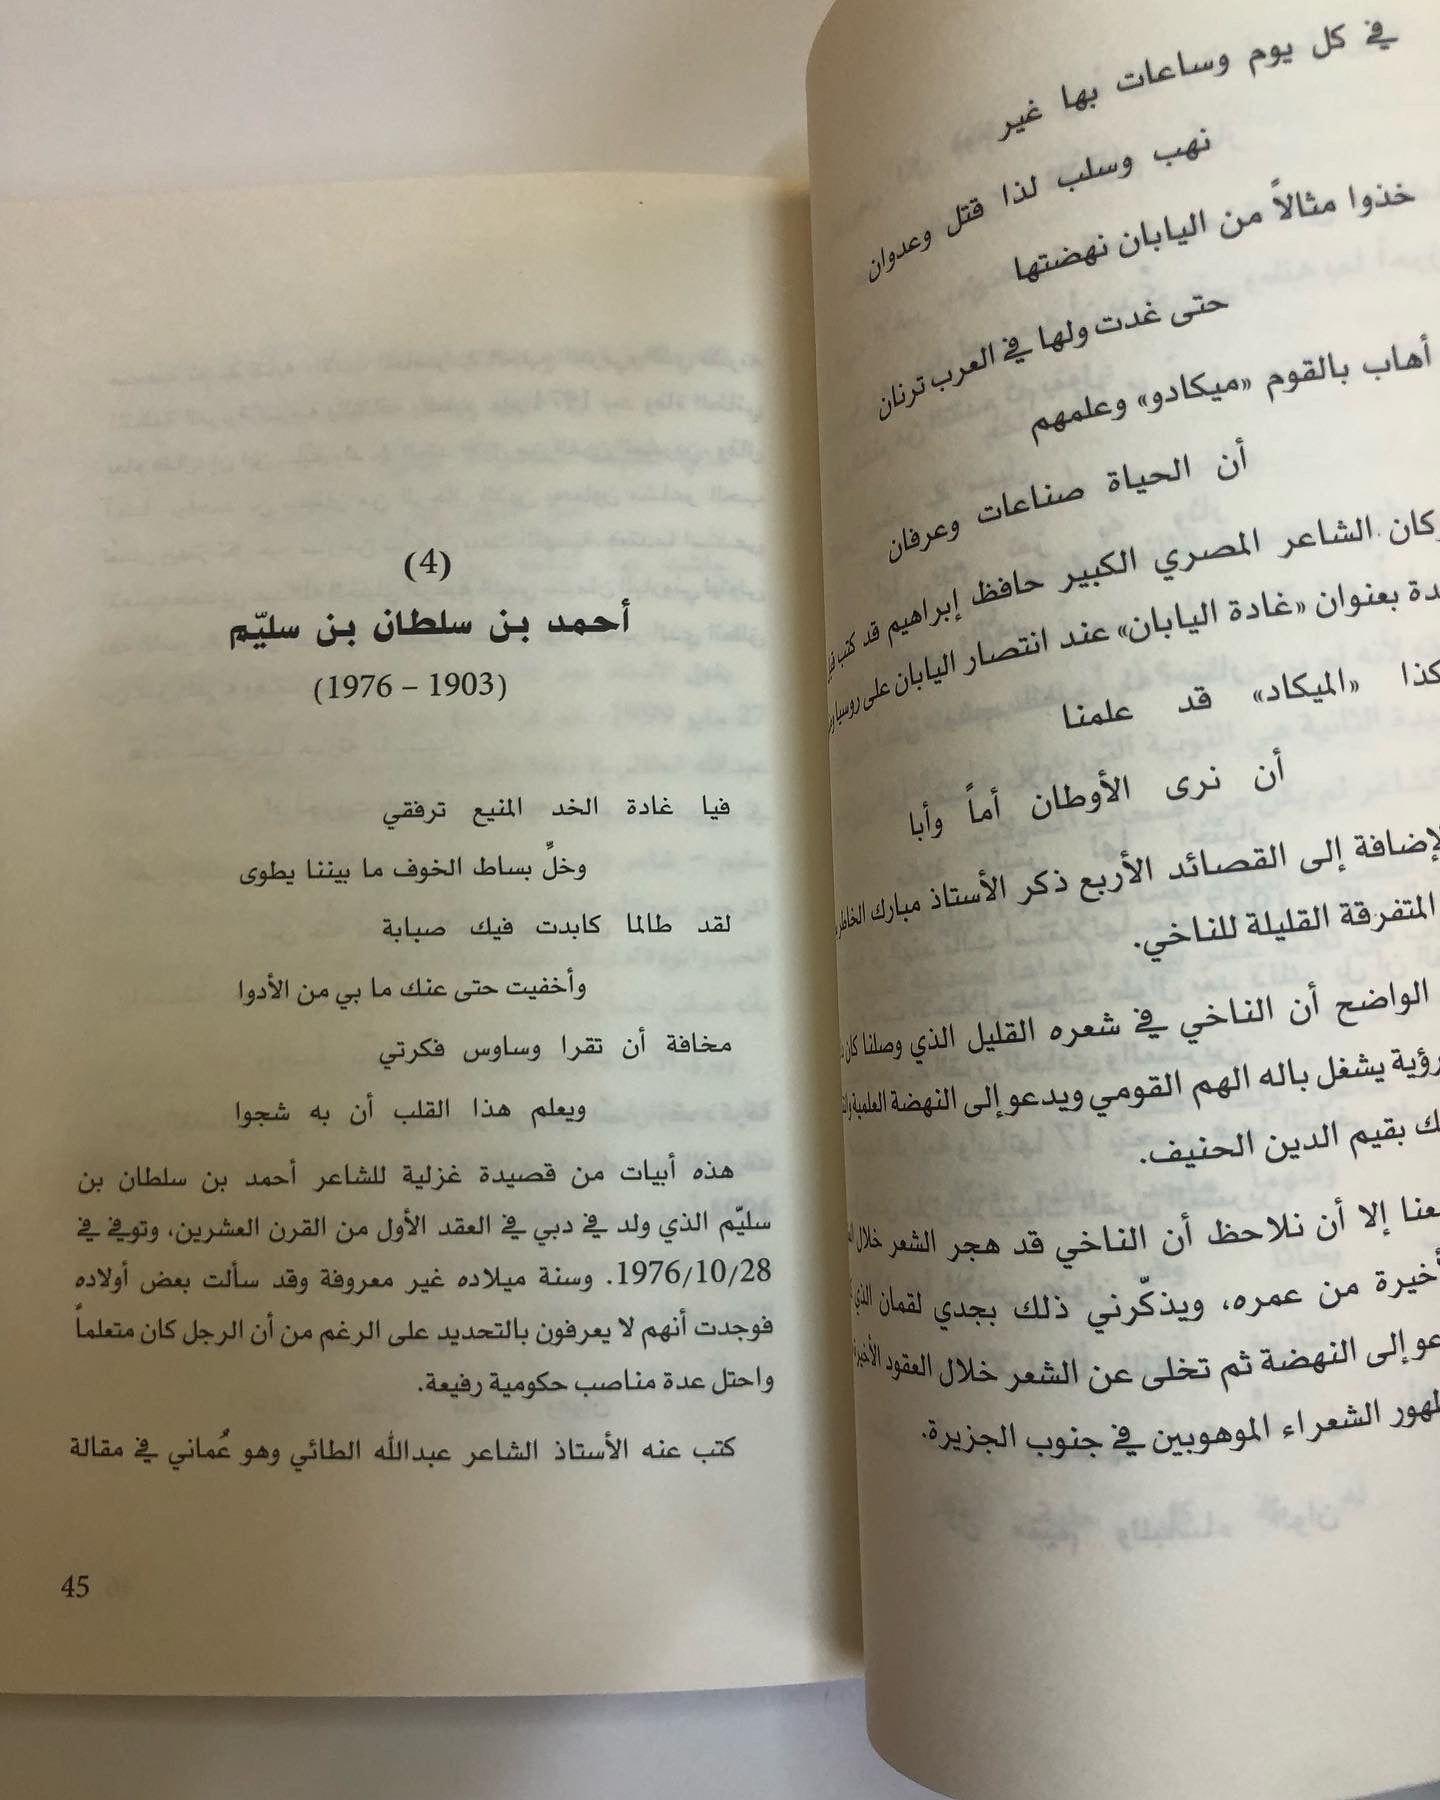 في كل يوم وساعات بها غير
نهب وسلب لذا قتل وعدوان
خذوا مثالاً من اليابان نهضتها
حتى غدت ولها في العرب ترنان
أهاب بالقوم «ميكادو» وعلمهم
أن الحياة صناعات وعرفان
وكان الشاعر المصري الكبير حافظ إبراهيم قد كتب
بعنوان «غادة اليابان» عند انتصار اليابان على روسيا
«الميكاد» قد علمنا
أن نرى الأوطان أماً وأبا
إلى القصائد الأربع ذكر الأستاذ مبارك الخاطر
المتفرقة القليلة للناخي.
الواضح أن الناخي في شعره القليل الذي وصلنا كان
رؤية يشغل باله الهم القومي ويدعو إلى النهضة العلمية
بقيم الدين الحنيف.
إلا أن نلاحظ أن الناخي قد هجر الشعر خلال
من عمره، ويذكّرني ذلك بجدي لقمان الذي
إلى النهضة ثم تخلى عن الشعر خلال العقود الأخيرة
الشعراء الموهوبين في جنوب الجزيرة.
(4)
أحمد بن سلطان بن سليّم
(1903 – 1976)
فيا غادة الخد المنيع ترفقي
وخلِّ بساط الخوف ما بيننا يطوى
لقد طالما كابدت فيك صبابة
وأخفيت حتى عنك ما بي من الأدوا
مخافة أن تقرا وساوس فكرتي
ويعلم هذا القلب أن به شجوا
هذه أبيات من قصيدة غزلية للشاعر أحمد بن سلطان بن
سليّم الذي ولد في دبي في العقد الأول من القرن العشرين، وتوفي في
1976/10/28. وسنة ميلاده غير معروفة وقد سألت بعض أولاده
فوجدت أنهم لا يعرفون بالتحديد على الرغم من أن الرجل كان متعلماً
واحتل عدة مناصب حكومية رفيعة.
كتب عنه الأستاذ الشاعر عبدالله الطائي وهو عُماني في مقالة
45